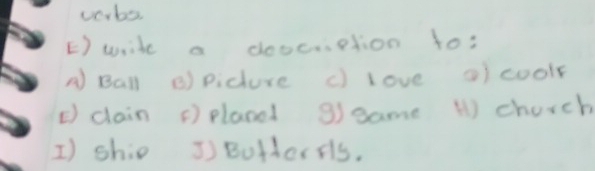 verbs
E) write a description to:
A) Ball B) Picture C) Love D) cook
E) clain F) planet g) game H) church
I) ship J) Butterfly.